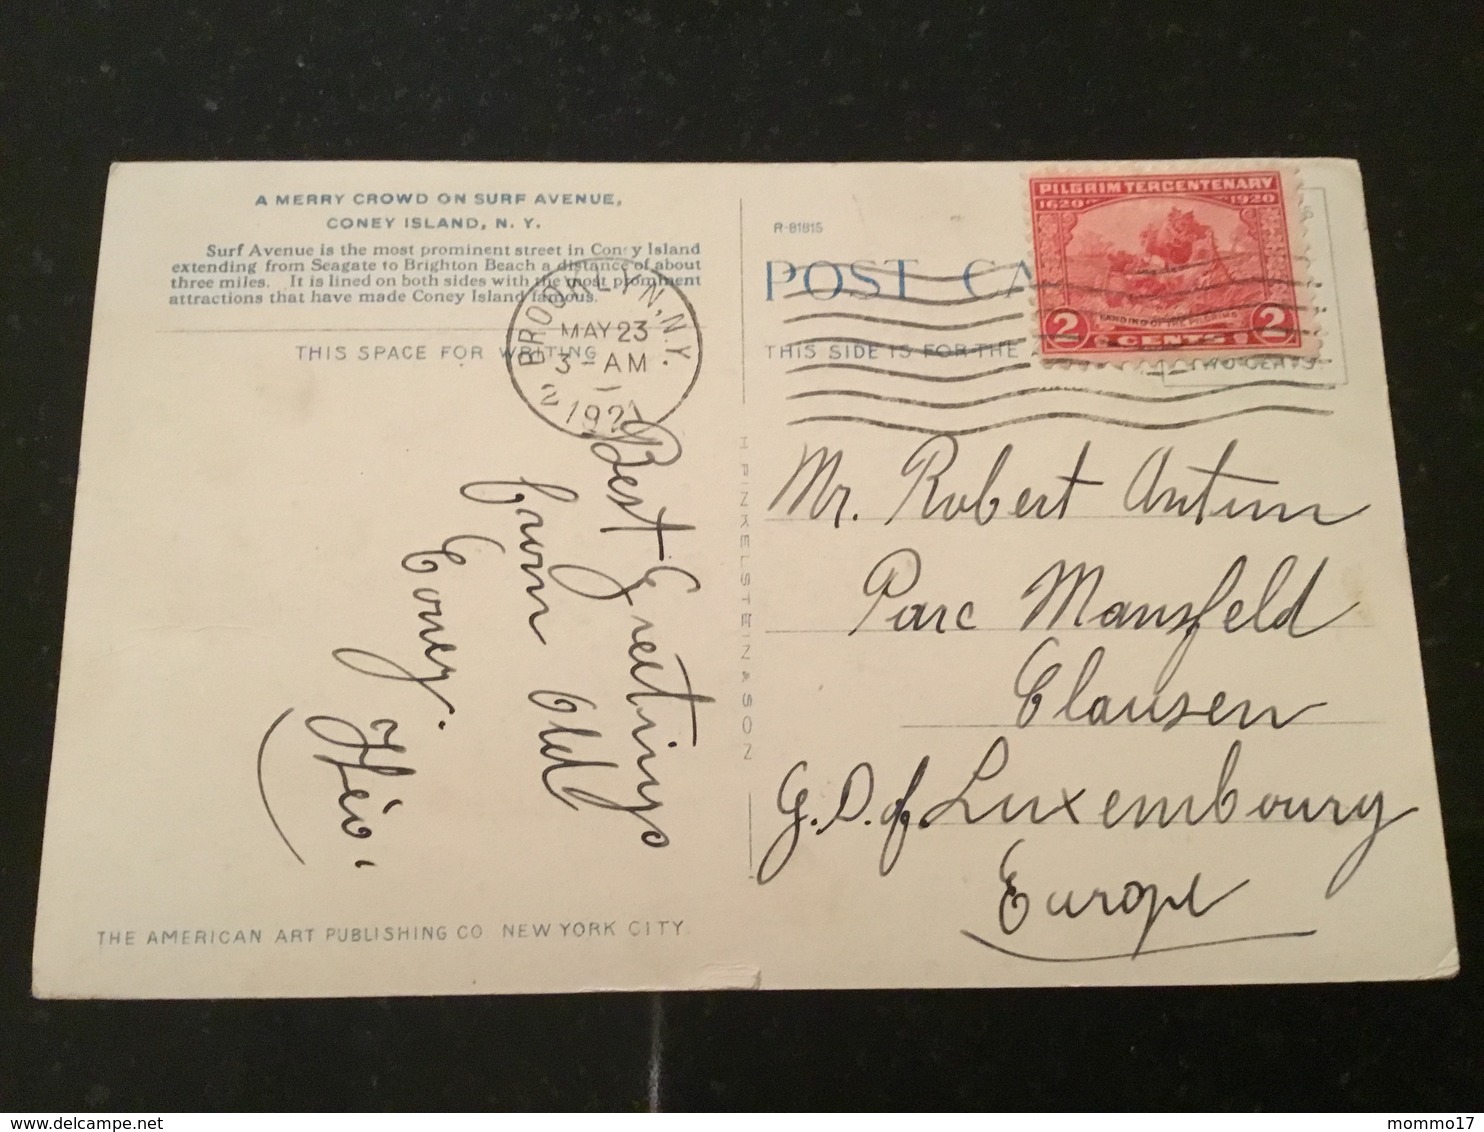 A MERRY CROWD ON SURF AVENUE,
CONEY ISLAND, N. Y.
Surf Avenue is the most prominent street in Coney Island
extending from Seagate to Brighton Beach a distance of about
three miles. It is lined on both sides with the most prominent
attractions that have made Coney Island famous.
THIS SPACE FOR WRITING
BROOKLYN, N.Y.
MAY 23
3 - AM
2
1921
Best Greetings
from Old
Coney.
Théo.
THE AMERICAN ART PUBLISHING CO NEW YORK CITY.
H FINKELSTEIN & SON
R-81815
POST CA
THIS SIDE IS FOR THE
PILGRIM TERCENTENARY
1620 1920
LANDING OF THE PILGRIMS
2 CENTS 2
TWO CENTS
Mr. Robert Antun
Parc Mansfeld
Clausen
G.D. of Luxembourg
Europe
delcampe.net
mommo17